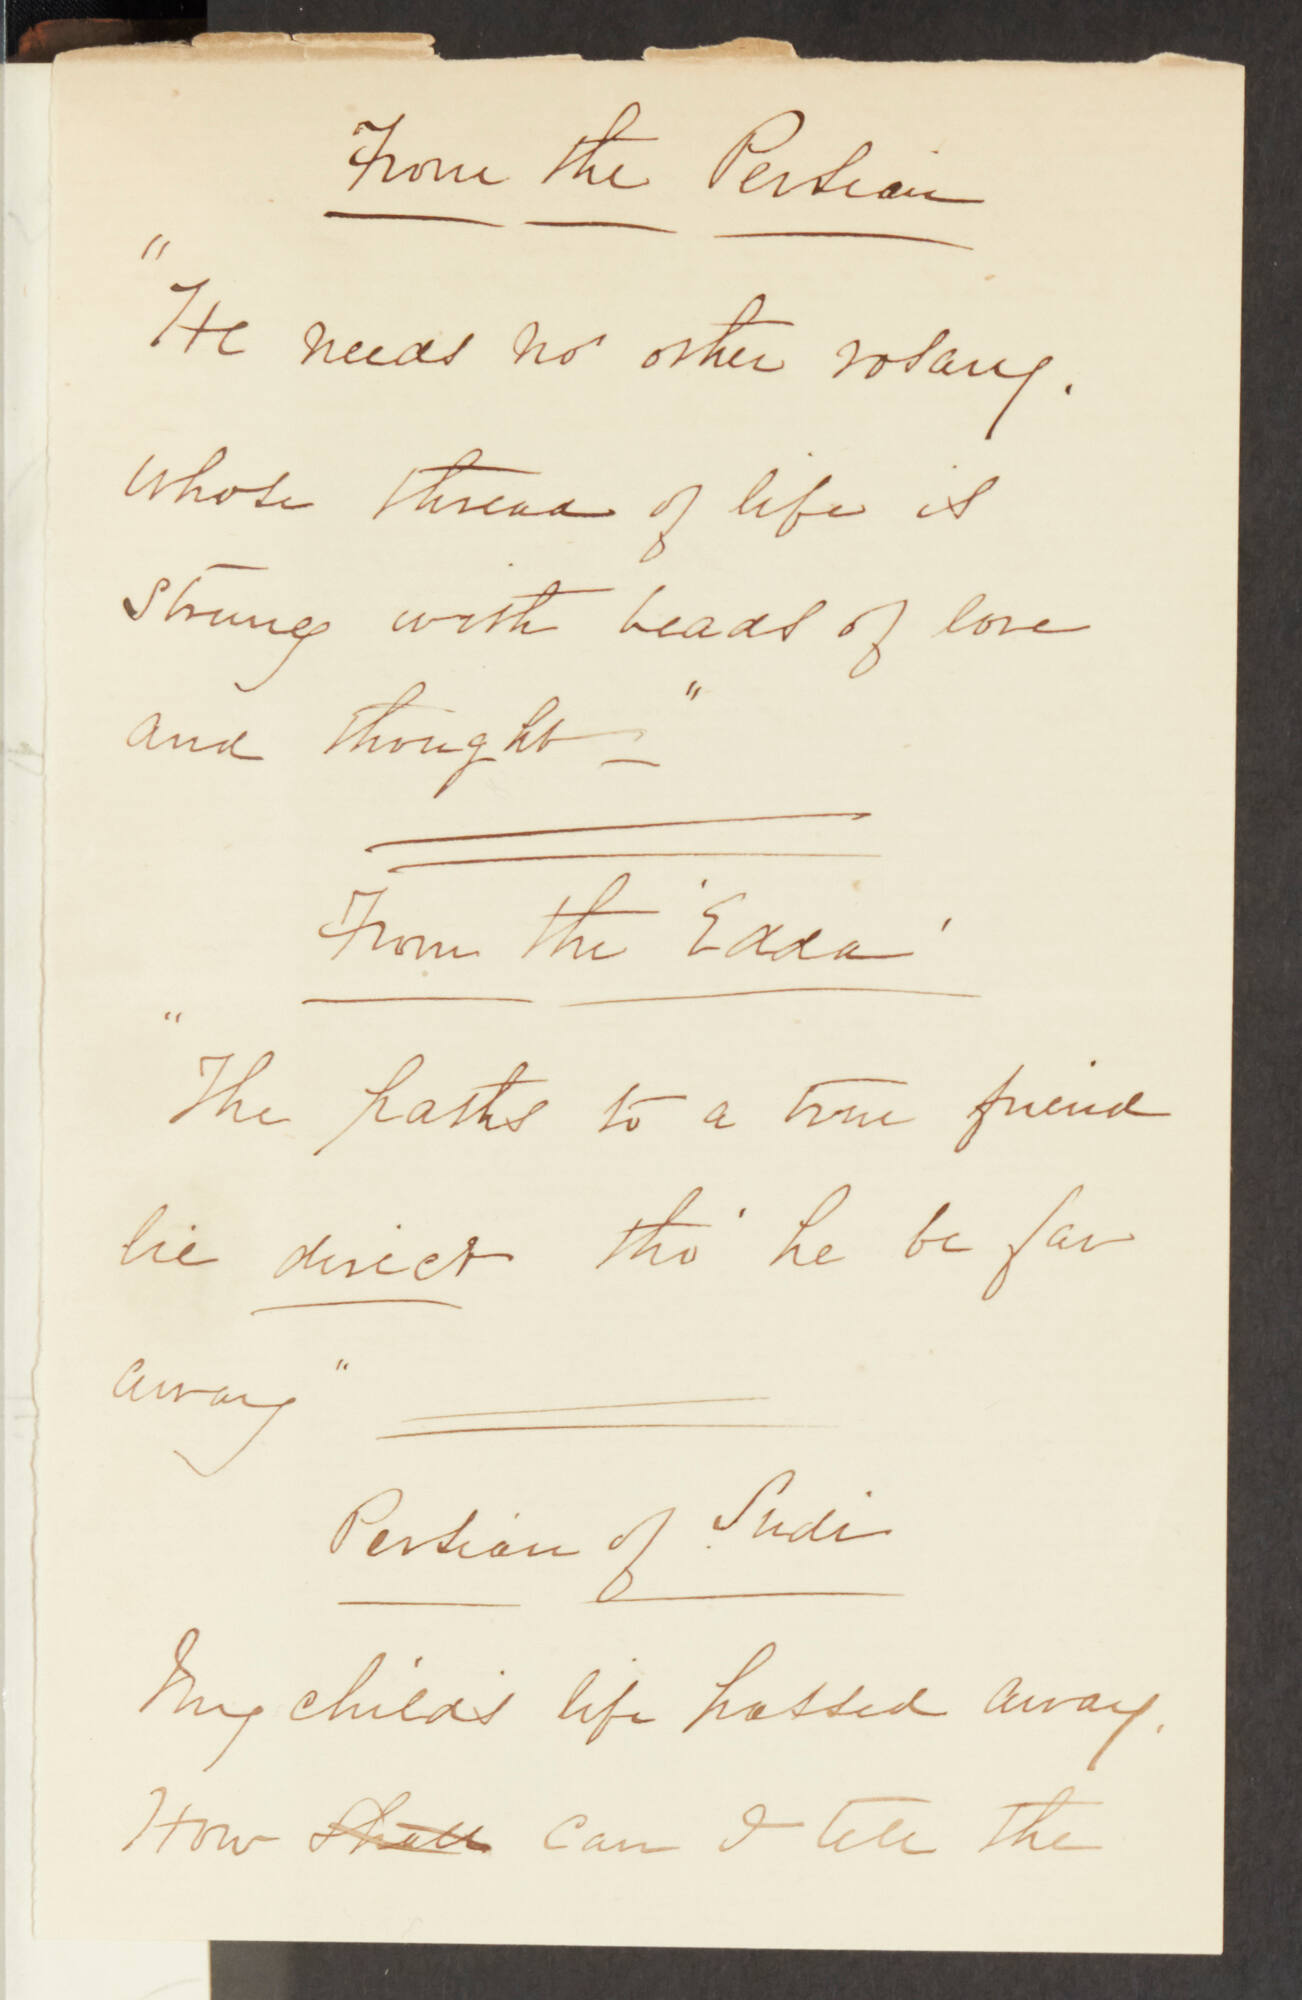 From the Persian
"He needs no other rosary.
whose thread of life is
strung with beads of love
and thought—"
From the 'Edda'
"The paths to a true friend
lie direct tho' he be far
away"
Persian of Sudi
My child's life passed away.
How shall can I tell the